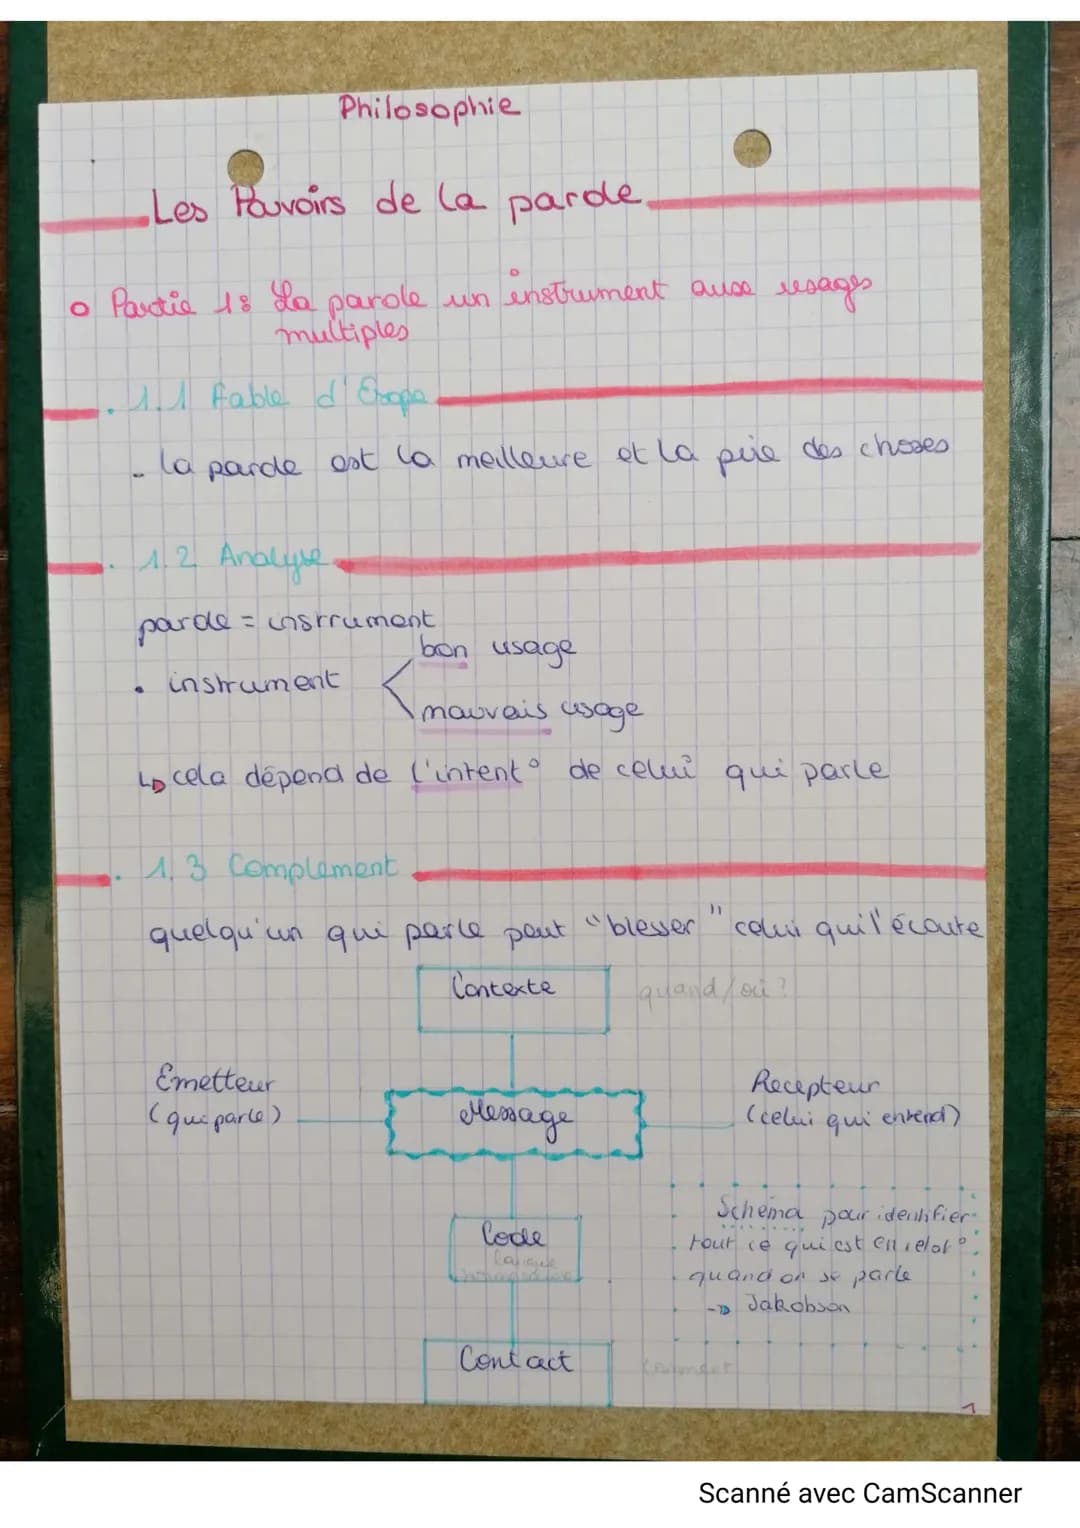 Philosophie
Les Pouvoirs de la parole
Partie 1: La parole un instrument aux usages
multiples
1.1 Fable d'Esope
- la parole est la meilleure et la pire des choses
1.2 Analyse
parole = instrument
bon usage
• instrument
mauvais usage
↳ cela dépend de l'intent° de celui qui parle
1.3 Complément
quelqu'un qui parle peut "blesser" celui qui l'écoute
Contexte quand/où?
Emetteur
(qui parle)
Message
Recepteur
(celui qui entend)
Code
langue
Schéma pour identifier
tout ce qui est en relat°
quand on se parle
→ Jakobson
Contact comment
1
Scanné avec CamScanner